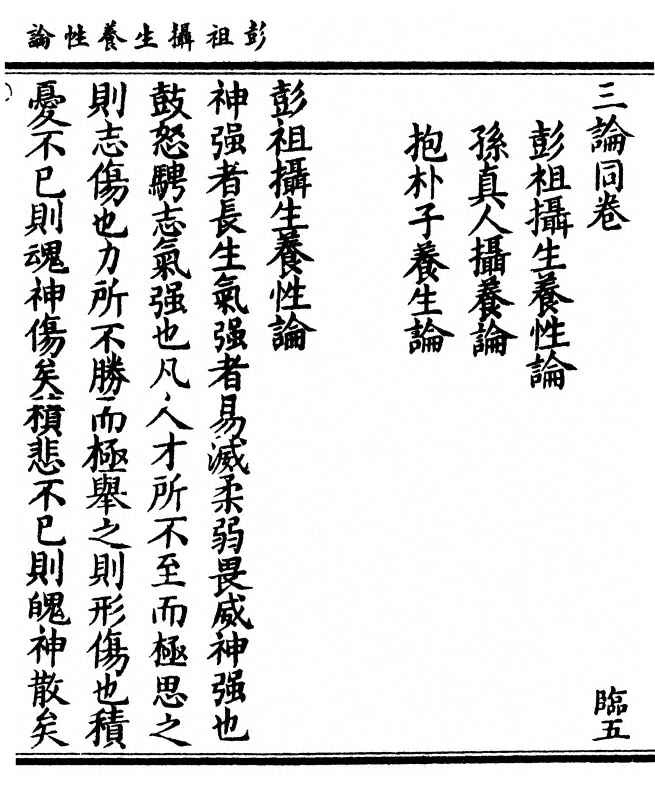 彭祖攝生養性論
三論同卷
臨五
彭祖攝生養性論
孫真人攝養論
抱朴子養生論
彭祖攝生養性論
神强者長生氣强者易滅柔弱畏威神强也
鼓怒騁志氣强也凡人才所不至而極思之
則志傷也力所不勝而極舉之則形傷也積
憂不已則魂神傷矣積悲不已則魄神散矣